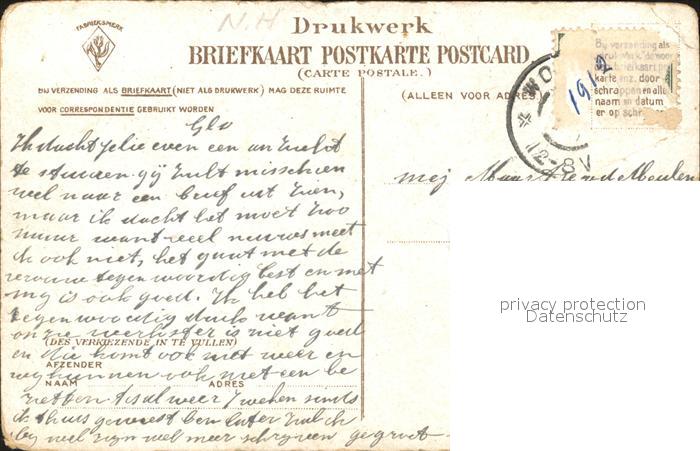 N.H
FABRIEKSMERK
Drukwerk
BRIEFKAART POSTKARTE POSTCARD
(CARTE POSTALE.)
BIJ VERZENDING ALS BRIEFKAART (NIET ALS DRUKWERK) MAG DEZE RUIMTE
VOOR CORRESPONDENTIE GEBRUIKT WORDEN
(ALLEEN VOOR ADRES)
Bij verzending als
drukwerk, de woor
briefkaart po
karte enz. door
schrappen en alle
naam en datum
er op schr
1912
WO
12-8V
Ik dacht jelie even een
te sturen gij zult misschien
wel naar een brief uit zien,
maar ik dacht het moet zoo
maar want veel nieuws weet
ik ook niet, het gaat met de
vrouw tegenwoordig best en met
mij is ook goed. Ik heb het
tegenwoordig druk want
onze werkster is niet goed
(DES VERKIEZENDE IN TE VULLEN)
en die komt ook niet weer en
AFZENDER
wij kunnen ook niet een be
NAAM ADRES
zetten tis al weer 7 weken sinds
ik thuis geweest ben later zal ik
wel meer schrijven gegroet
mej
privacy protection
Datenschutz